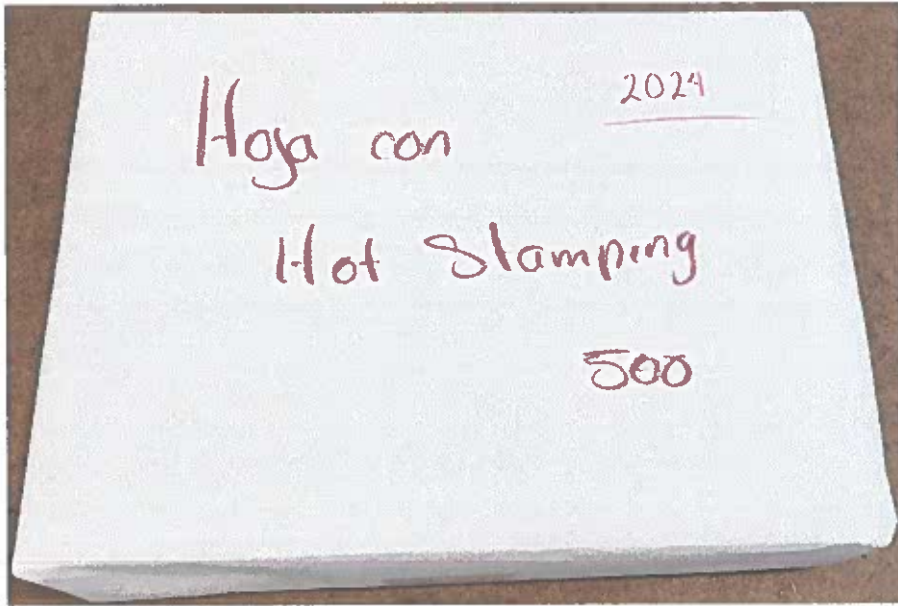 2024
Hoja con
Hot Stamping
500